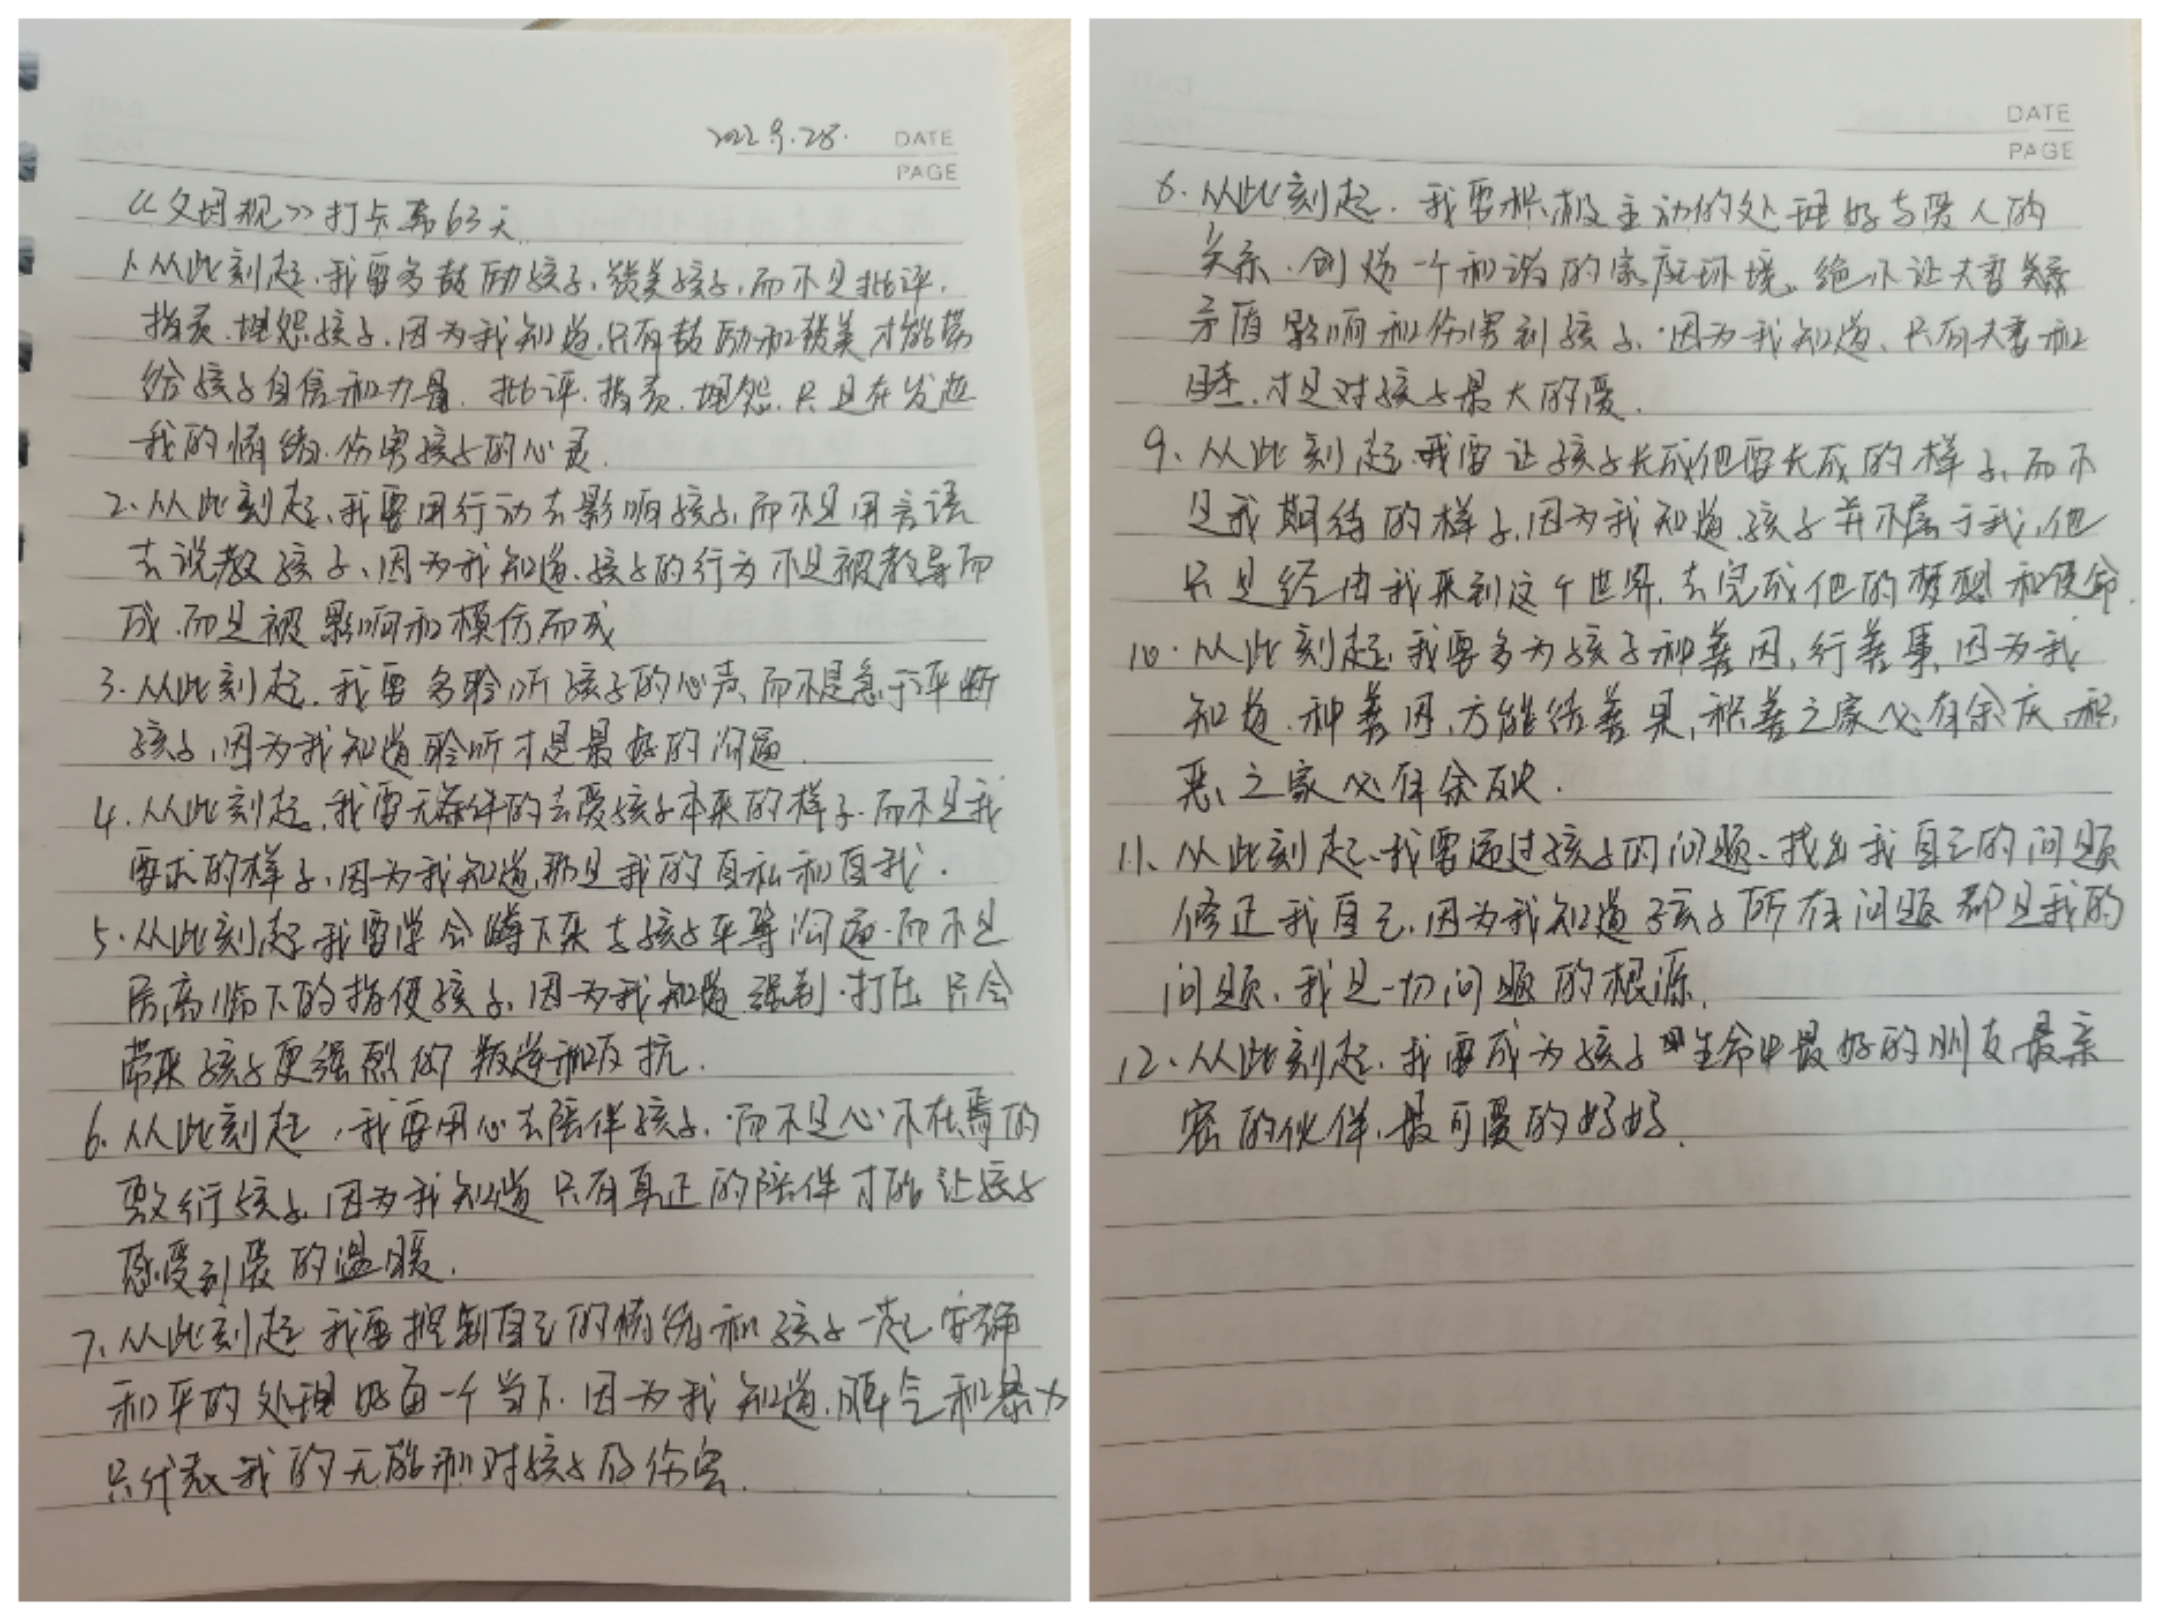 2022.9.28.
DATE
PAGE
《父母规》打卡第63天
1.从此刻起,我要多鼓励孩子,赞美孩子,而不是批评.
指责.埋怨孩子.因为我知道,只有鼓励和赞美才能带
给孩子自信和力量.批评.指责.埋怨.只是在发泄
我的情绪.伤害孩子的心灵.
2.从此刻起,我要用行动去影响孩子,而不是用言语
去说教孩子、因为我知道、孩子的行为不是被教导而
成.而是被影响和模仿而成
3.从此刻起.我要多聆听孩子的心声,而不是急于评断
孩子,因为我知道聆听才是最好的沟通.
4.从此刻起,我要无条件的去爱孩子本来的样子.而不是我
要求的样子,因为我知道,那是我的自私和自我.
5.从此刻起,我要学会蹲下来去孩子平等沟通.而不是
居高临下的指使孩子,因为我知道.强制.打压只会
带来孩子更强烈的叛逆和反抗.
6.从此刻起,我要用心去陪伴孩子.而不是心不在焉的
敷衍孩子,因为我知道只有真正的陪伴才能让孩子
感受到爱的温暖.
7.从此刻起我要控制自己的情绪和孩子一起安详
和平的处理好每一个当下.因为我知道.脾气和暴力
只代表我的无能和对孩子的伤害.
DATE
PAGE
8.从此刻起.我要积极主动的处理好与爱人的
关系.创造一个和谐的家庭环境。绝不让夫妻关系
矛盾影响和伤害到孩子.因为我知道、只有夫妻和
睦.才是对孩子最大的爱.
9.从此刻起.我要让孩子长成他要长成的样子,而不
是我期待的样子,因为我知道.孩子并不属于我,他
只是经由我来到这个世界.去完成他的梦想和使命.
10.从此刻起,我要多为孩子种善因,行善事,因为我
知道.种善因.方能结善果,积善之家必有余庆,积
恶之家必有余殃.
11、从此刻起、我要通过孩子的问题、找出我自己的问题
修正我自己,因为我知道孩子所有问题都是我的
问题、我是一切问题的根源.
12、从此刻起.我要成为孩子生命中最好的朋友,最亲
密的伙伴,最可爱的妈妈.